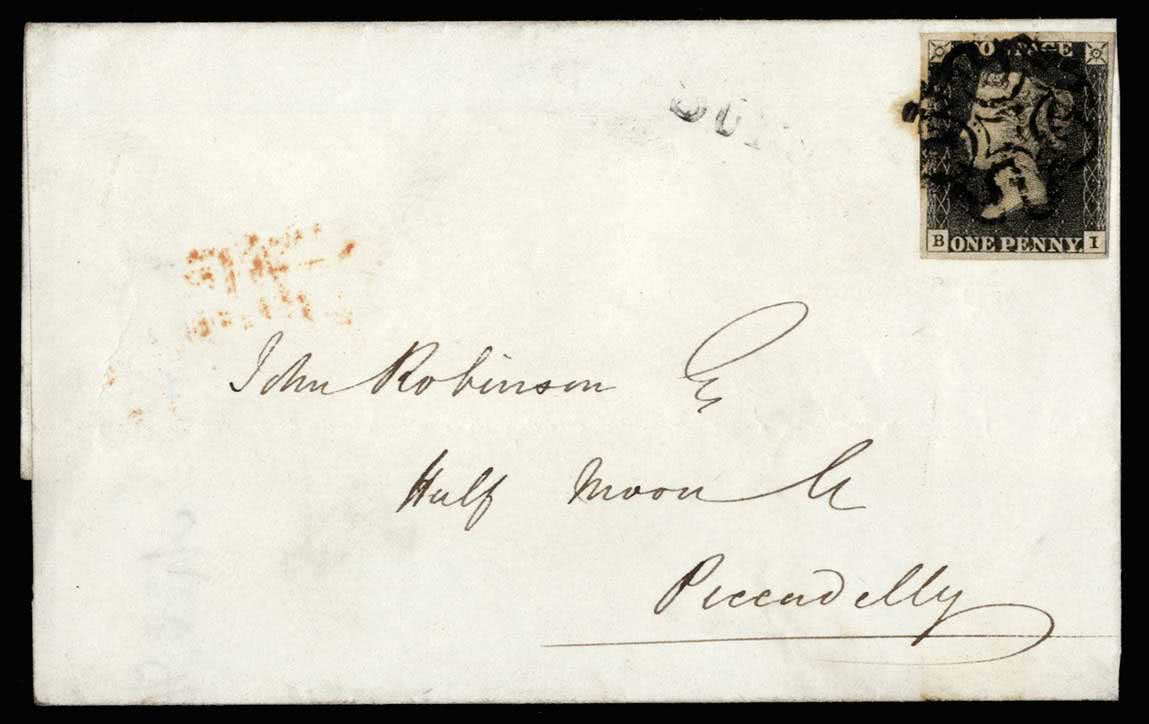 POSTAGE
B ONE PENNY. I
John Robinson Es
Half Moon St
Piccadilly